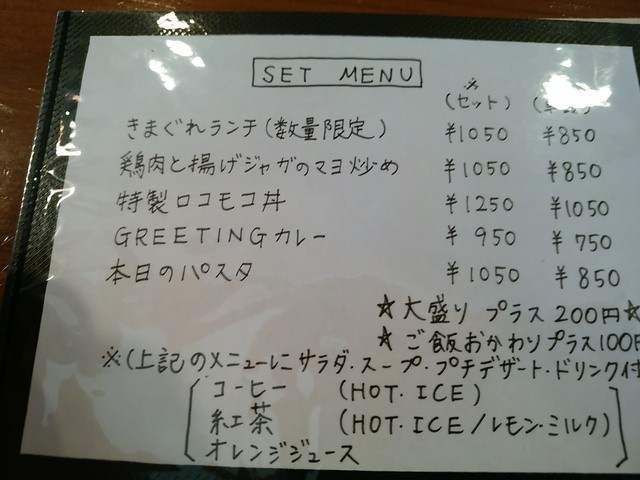 SET MENU
※
(セット)
きまぐれランチ(数量限定) ¥1050 ¥850
鶏肉と揚げジャガのマヨ炒め ¥1050 ¥850
特製ロコモコ丼 ¥1250 ¥1050
GREETINGカレー ¥950 ¥750
本日のパスタ ¥1050 ¥850
☆大盛り プラス200円☆
★ご飯おかわりプラス100円
※(上記のメニューにサラダ・スープ・プチデザート・ドリンク付
コーヒー (HOT・ICE)
紅茶 (HOT・ICE/レモン・ミルク)
オレンジジュース